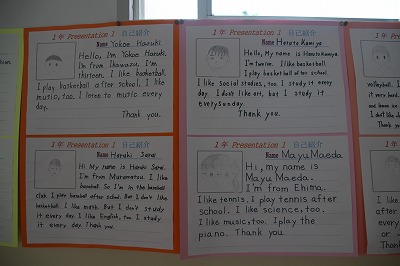 1年 Presentation 1 自己紹介
Name Yokoe Haruki
Hello, I'm Yokoe Haruki.
I'm from Ihomazu. I'm
thirteen. I like basketball.
I play basketball after school. I like
music, too. I listen to music every
day.
Thank you.
1年 Presentation 1 自己紹介
Name Haruki Sarai
Hi My name is Haruki Sarai.
I'm from Muramatsu. I like
baseball. So I'm in the baseball
club. I play baseball after school. But I don't like
basketball. I like math. But I don't study
it every day. I like English, too. I study
it every day. Thank you.
1年 Presentation 1 自己紹介
Name Haruto Kamiya
Hello, My name is Haruto Kamiya.
I'm twelve. I like basketball.
I play basketball after school.
I like social studies, too. I study it every
day. I don't like art, but I study it
every Sunday.
Thank you.
1年 Presentation 1 自己紹介
Name Mayu Maeda
Hi, my name is
Mayu Maeda.
I'm from Ehima.
I like tennis. I play tennis after
school. I like science, too.
I like music, too. I play the
piano. Thank you.
1年 Presentation
volleyball. I
it very hard.
I don't like
Thank
1年 Presentation
I like
after
every
or
Thank